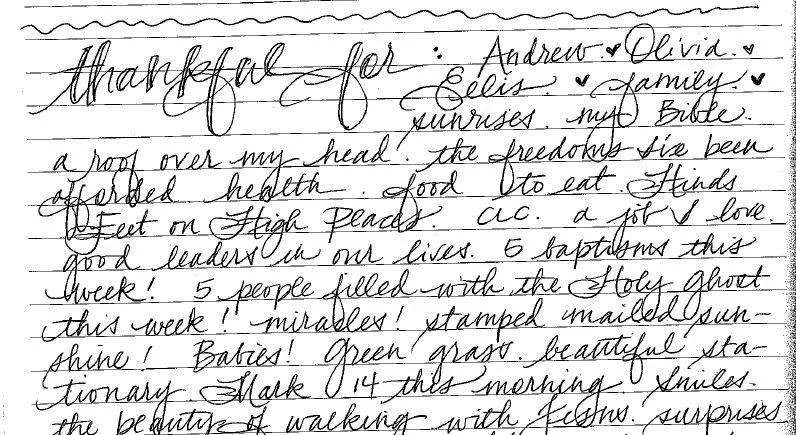 thankful for: Andrew ♥ Olivia ♥
Eelis ♥ family ♥
sunrises. my Bible.
a roof over my head. the freedoms I've been
afforded health. food to eat. Hinds
Feet on High Places. a.c. a job I love.
good leaders in our lives. 5 baptisms this
week! 5 people filled with the Holy Ghost
this week! miracles! stamped mailed sun-
shine! Babies! Green grass. beautiful sta-
tionary. Mark 14 this morning. Smiles.
the beauty of walking with Jesus. surprises